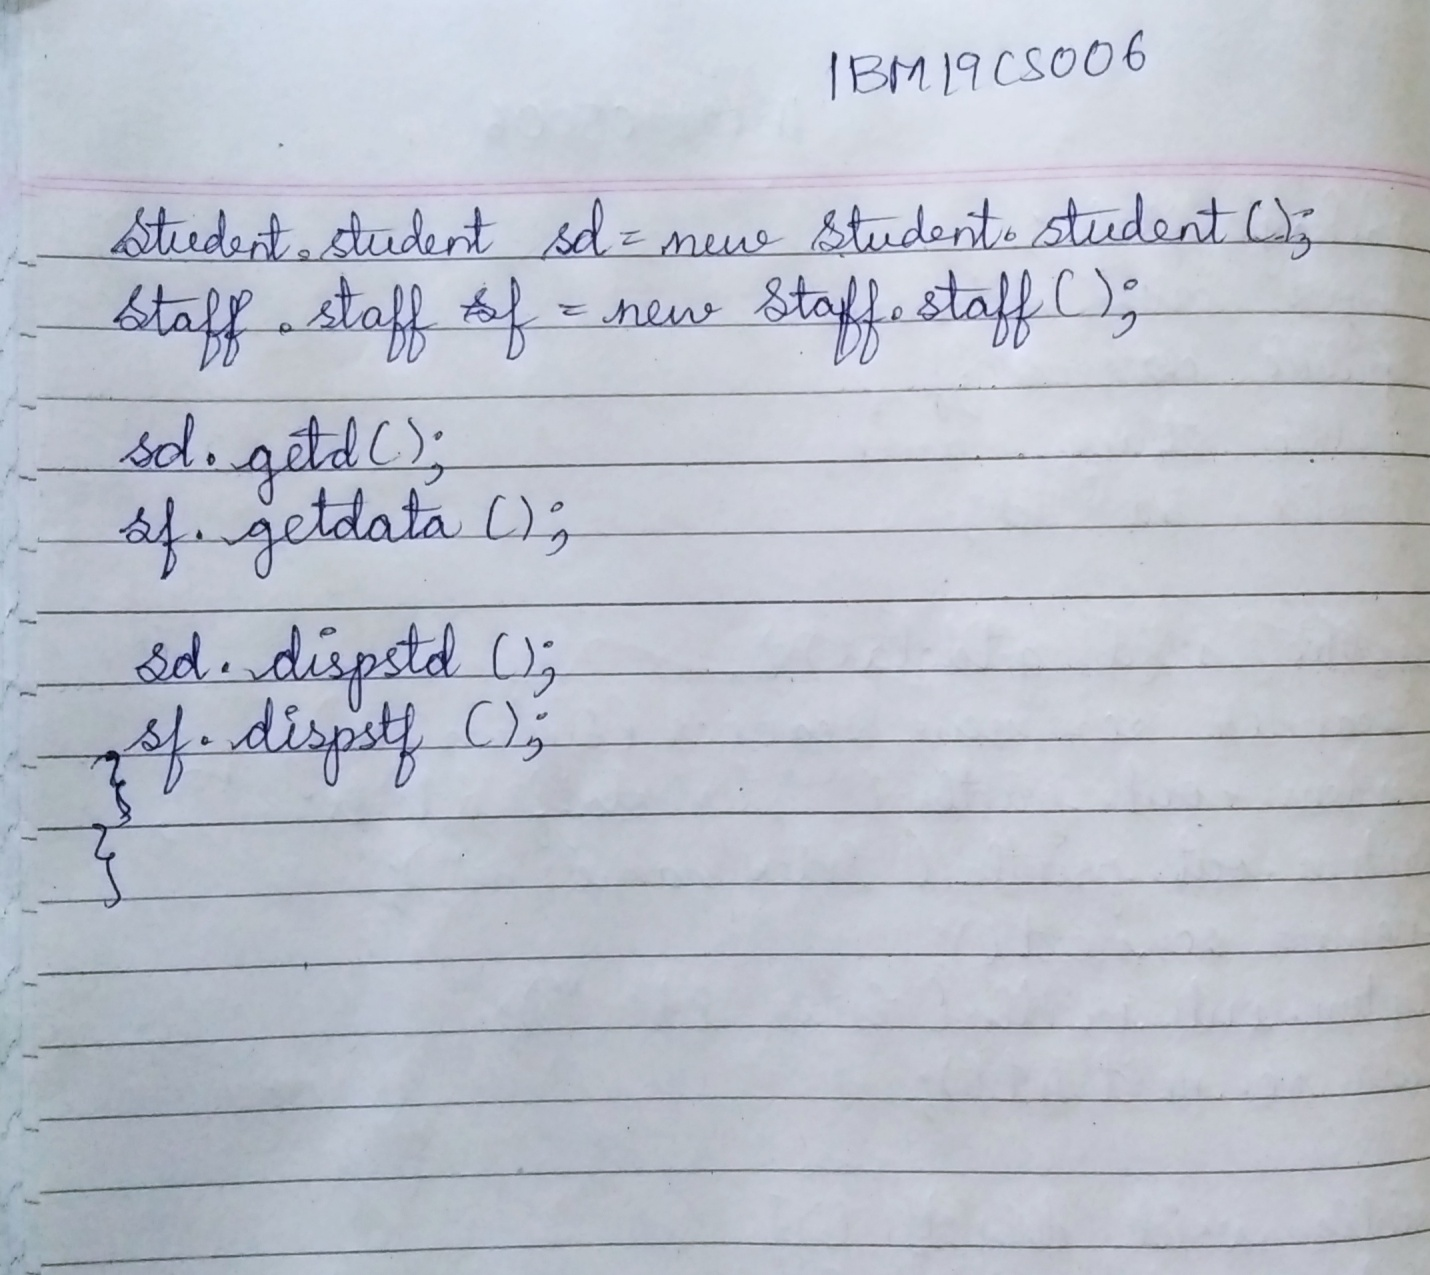 1BM19CS006
Student.student sd = new Student.student();
Staff.staff sf = new Staff.staff();
sd.getd();
sf.getdata();
sd.dispstd();
sf.dispstf();
}
}